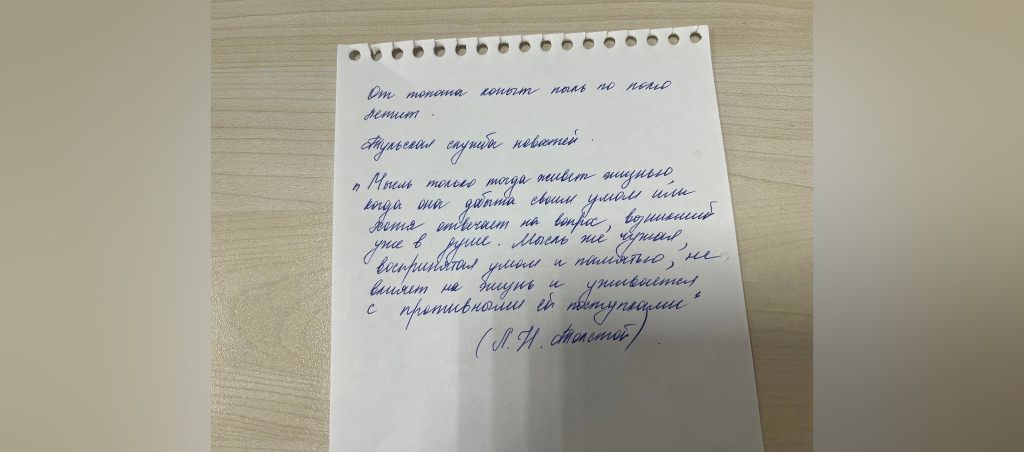 От топота копыт пыль по полю
летит.
Тульская служба новостей.
"Мысль только тогда живёт жизнью,
когда она добыта своим умом или
хотя отвечает на вопрос, возникший
уже в душе. Мысль же чужая,
воспринятая умом и памятью, не
влияет на жизнь и уживается
с противными ей поступками"
(Л. Н. Толстой).